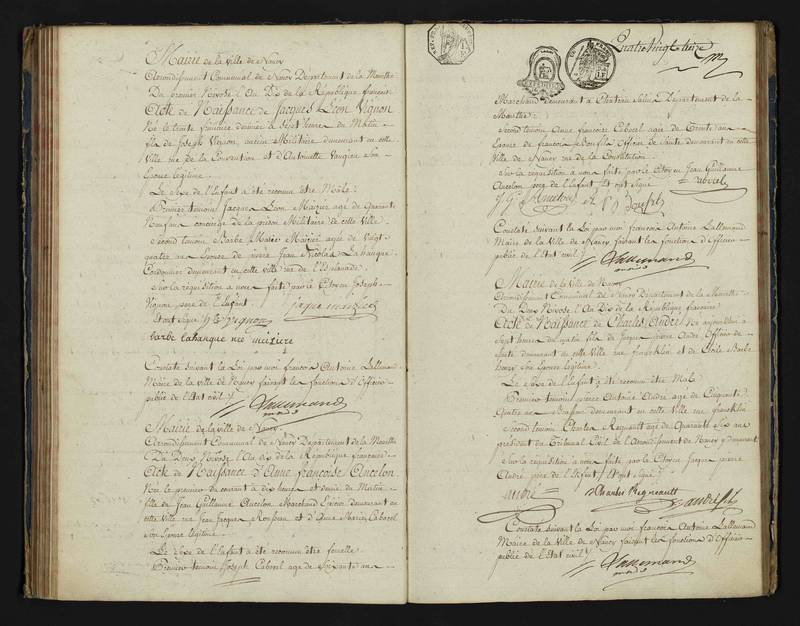 Mairie de la ville de Nancy
Arrondissement Communal de Nancy Département de la Meurthe
Du premier Nivose l'An Dix de la République française
Acte de Naissance de Jacques Léon Vignon
Né le trente frimaire dernier à Sept heures du Matin
fils de Joseph Vignon, ancien Militaire demeurant en cette
Ville rue de la Convention et d'Antoinette Vaugien Son
Epouse légitime.
Le Sexe de l'Enfant a été reconnu être Mâle.
Premier temoin, Jacques Léon Maizier agé de Quarante
concierge de la prison Militaire de cette Ville.
Second temoin Barbe Marie Maizier agée de Vingt
quatre ans Epouse de pierre Jean Nicolas Lahanque
Cordonnier demeurant en cette ville rue de l'Esplanade.
Sur la réquisition à nous faite par le Citoyen Joseph
Vignon pere de l'Enfant
Et ont Signé Vignon
barbe Lahanque née meiziere
Constaté Suivant la Loi par moi françois Antoine Lallemand
Maire de la ville de Nancy faisant les fonctions d'Officier
public de l'Etat civil.
Lallemand
Mairie de la ville de Nancy.
Arrondissement Communal de Nancy Département de la Meurthe
Du Deux Nivose l'An dix de la République française
Acte de Naissance d'Anne françoise Ancelon
Née le premier du courant à dix heures et demie du Matin
fille de Jean Guillaume Ancelon Marchand Epicier demeurant en
cette Ville rue Jean Jacques Rousseau et d'Anne Marie Caborel
son Epouse légitime.
Le Sexe de l'Enfant a été reconnu être femelle.
Premier temoin Joseph Caborel agé de Soixante ans
Quatre vingt treize
Marchand demeurant à Château Salins Département de la
Meurthe.
Second temoin Anne françoise Caborel agée de Trente ans
Epouse de françois Officier de Santé demeurant en cette
Ville de Nancy rue de la Constitution.
Sur la réquisition à nous faite par le Citoyen Jean Guillaume
Ancelon pere de l'Enfant Et ont Signé
J G Ancelon
Constaté Suivant la Loi par moi françois Antoine Lallemand
Maire de la Ville de Nancy faisant les fonctions d'Officier
public de l'Etat civil
Lallemand
Mairie de la ville de Nancy
Arrondissement Communal de Nancy Département de la Meurthe
Du Deux Nivose l'An Dix de la République française
Acte de Naissance de Charles André Né aujourd'hui à
Sept heures du matin fils de Jacques pierre André Officier de
Santé demeurant en cette ville rue franklin et de Cécile Barbe
Henry Son Epouse légitime.
Le Sexe de l'Enfant a été reconnu être Mâle
Premier temoin pierre Antoine André agé de Cinquante
Quatre ans demeurant en cette Ville rue franklin
Second temoin Charles Regnault agé de Quarante Six ans
président du Tribunal Civil de l'Arrondissement de Nancy y demeurant
Sur la réquisition à nous faite par le Citoyen Jacques pierre
André pere de l'Enfant Et ont Signé
André
Charles Regneault
andré
Constaté Suivant la Loi par moi françois Antoine Lallemand
Maire de la Ville de Nancy faisant les fonctions d'Officier
public de l'Etat civil
Lallemand